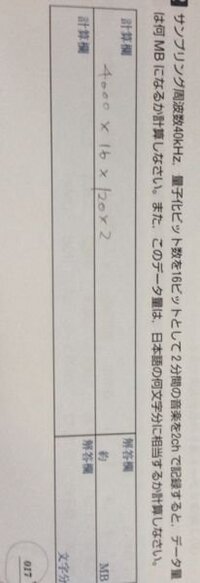 サンプリング周波数40kHz,量子化ビット数を16ビットとして2分間の音楽を2chで記録すると,データ量
は何MBになるか計算しなさい。また,このデータ量は,日本語の何文字分に相当するか計算しなさい。
計算欄
4000×16×120×2
解答欄
約 MB
計算欄
解答欄
文字分
017